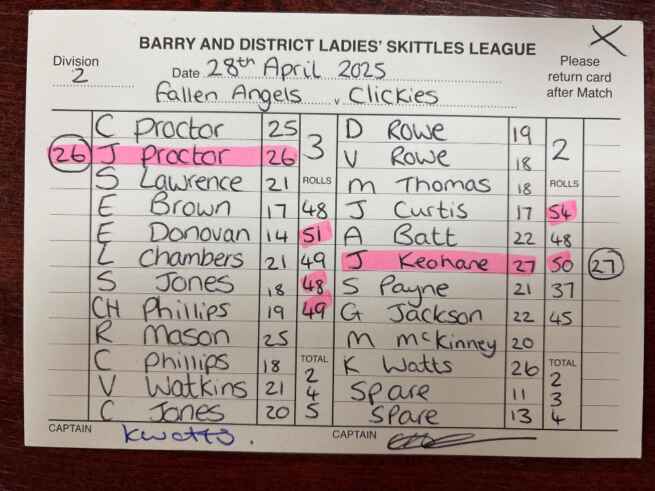 BARRY AND DISTRICT LADIES' SKITTLES LEAGUE
Division 2
Date 28th April 2025
Please return card after Match
Fallen Angels v Clickies
C Proctor 25 3 D Rowe 19 2
26 J Proctor 26 V Rowe 18
S Lawrence 21 ROLLS M Thomas 18 ROLLS
E Brown 17 48 J Curtis 17 54
E Donovan 14 51 A Batt 22 48
L Chambers 21 49 J Keohane 27 50 27
S Jones 18 48 S Payne 21 37
CH Phillips 19 49 G Jackson 22 45
R Mason 25 M McKinney 20
C Phillips 18 TOTAL 2 K Watts 26 TOTAL 2
V Watkins 21 4 Spare 11 3
C Jones 20 5 Spare 13 4
CAPTAIN KWatts. CAPTAIN